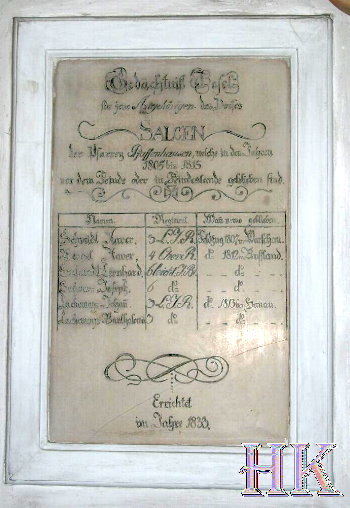 Gedächtniß Tafel
für jene Angehörigen des Dorfes
SALGEN
der Pfarrey Pfaffenhausen, welche in den Jahren
1805 bis 1815
vor dem Feinde oder in Feindeslande geblieben sind.
Namen. Regiment. Wann u. wo geblieben.
Schmidt Xaver. 3 L.I.R. Feldzug 1807 in Warschau.
Xaver. 4 Chev.R. do 1812 in Rußland.
Leonhard. 6 do
Joseph. 6 do do
Johann. 3 L.I.R. do 1813 in Hanau.
Bartholomä 3 do do
Errichtet
im Jahre 1833.
HK